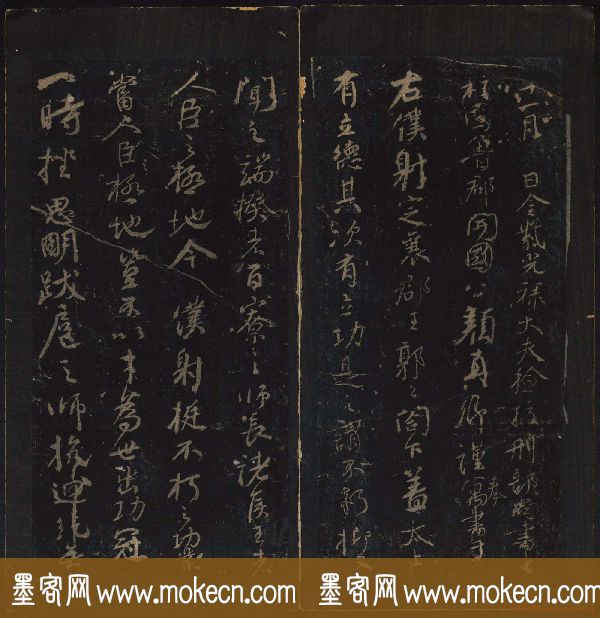 十一月日金紫光祿大夫檢校刑部尚書上
柱國魯郡開國公顏真卿謹奉寓書于
右僕射定襄郡王郭公閤下蓋太上
有立德其次有立功是之謂不朽抑又
聞之端揆者百寮之師長諸侯王者
人臣之極地今僕射挺不朽之功業
當人臣極地豈不以才為世出功冠
一時挫思明跋扈之師抗迴紇無
墨客网 www.mokecn.com 墨客网 www.mokecn.com